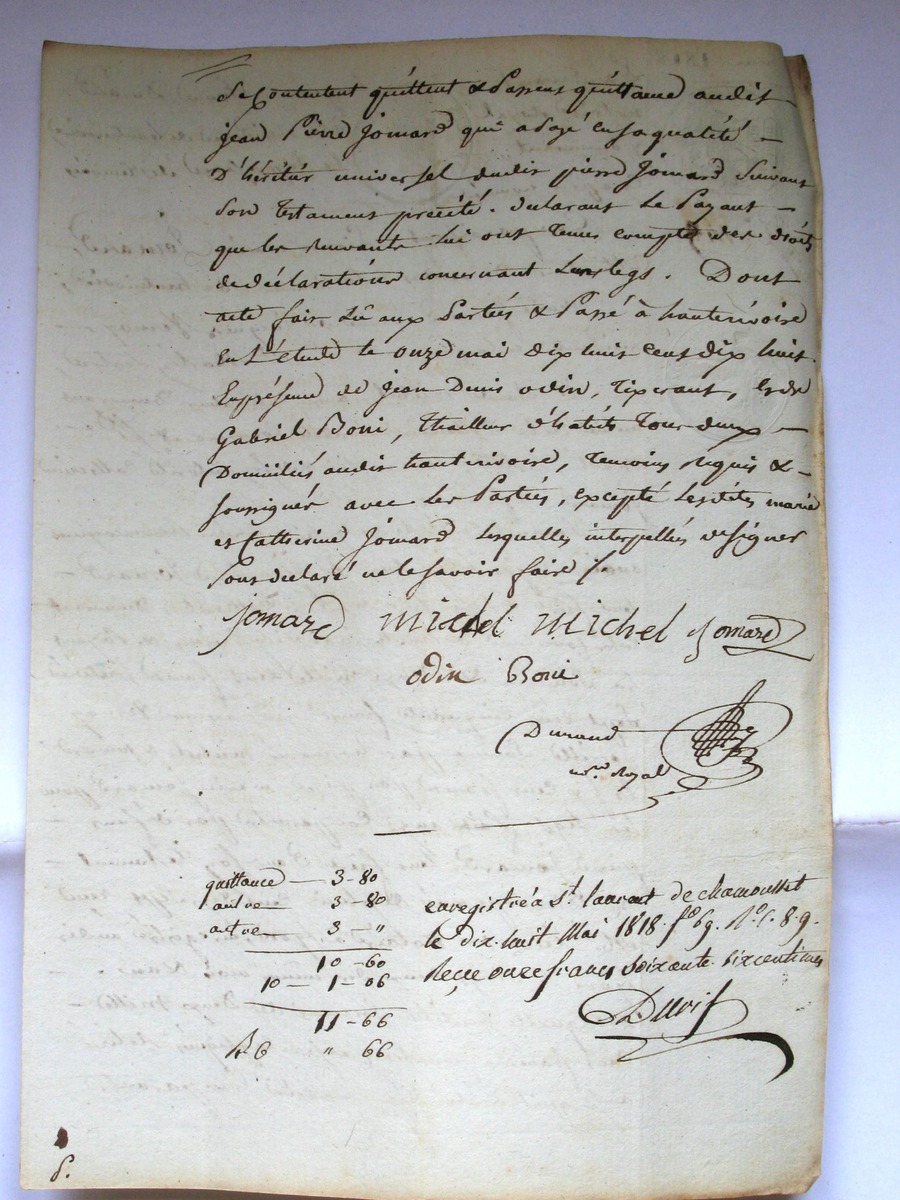 Se Contentent quittent & Passent quittance audit
jean Pierre Jomard qui a payé en sa qualité
D'héritier universel dudit pierre Jomard Suivant
Son Testament précité. declarant le Payant
que les suivants lui ont Tenus compte des droits
de déclarations concernant Leurs legs. Dont
acte fait Lû aux Parties & Passé à hauterivoire
En L'étude le onze mai dix huit cent dix huit.
En présence de jean Denis odin, Tixerant, et de
Gabriel Boni, Thailleur d'habits Tous deux
Domiciliés audit hauterivoire, Temoins requis &
soussignés avec les Parties, excepté lesdites marie
et Catherine Jomard lesquelles interpellées de signer
ont declaré ne le savoir faire /.
Jomard Michel Michel Jomard
odin Boni
Durand
no.re Royal
quittance — 3-80
autre — 3-80
autre — 3 - "
10-60
10 — 1-06
11-66
R 6 " 66
enregistré à St. laurent de chamousset
le dix huit Mai 1818. fo 69. Ro. c. 8. 9.
Reçu onze francs soixante six centimes